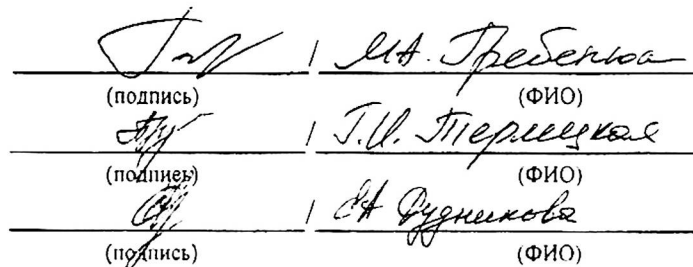 / М.А. Гребенюк
(подпись) (ФИО)
/ Г.И. Терлецкая
(подпись) (ФИО)
/ ЕА Дудникова
(подпись) (ФИО)